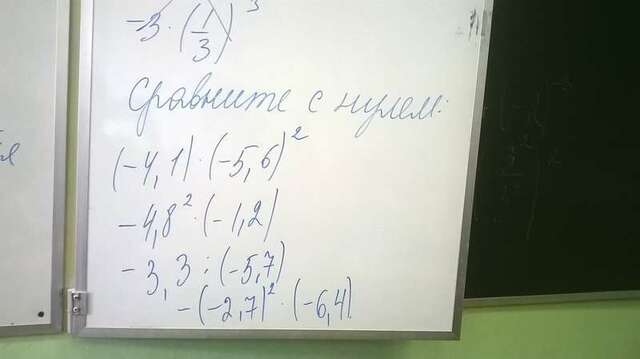 -3 · (1/3)³
Сравните с нулем:
(-4,1) · (-5,6)²
-4,8² · (-1,2)
-3,3 : (-5,7)
-(-2,7)² · (-6,4)
я